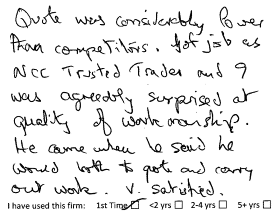 Quote was considerably lower
than competitors. Got job as
NCC Trusted Trader and I
was agreeably surprised at
quality of workmanship.
He came when he said he
would both to quote and carry
out work. V. Satisfied.
I have used this firm: 1st Time ☑ <2 yrs ☐ 2-4 yrs ☐ 5+ yrs ☐